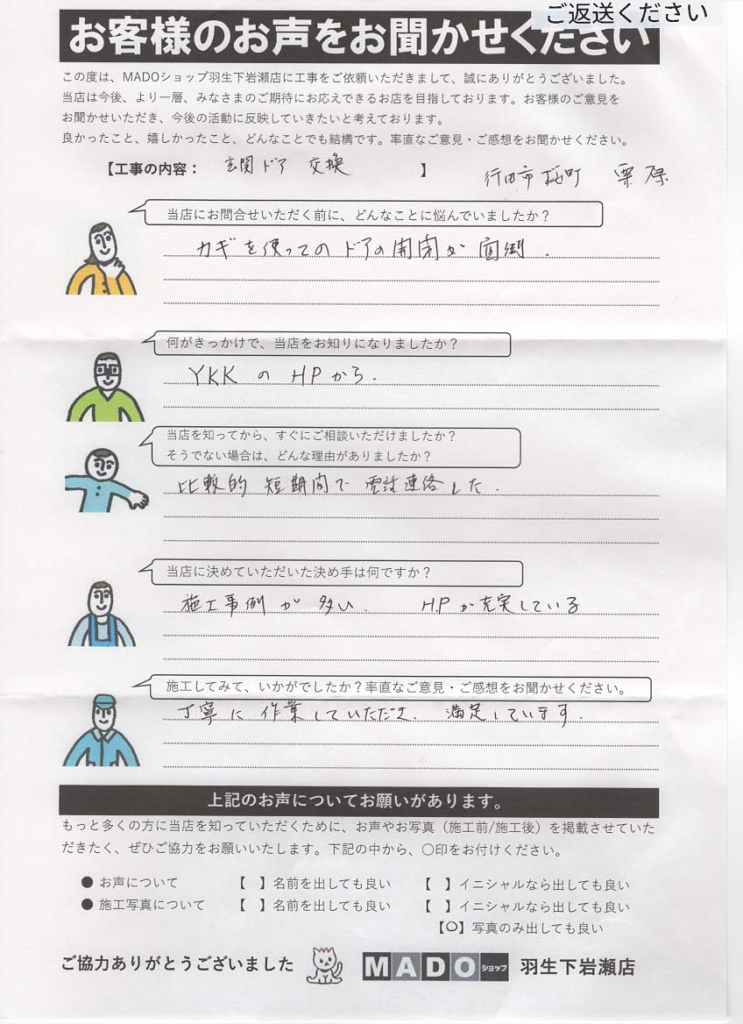 ご返送ください
お客様のお声をお聞かせください
この度は、MADOショップ羽生下岩瀬店に工事をご依頼いただきまして、誠にありがとうございました。
当店は今後、より一層、みなさまのご期待にお応えできるお店を目指しております。お客様のご意見を
お聞かせいただき、今後の活動に反映していきたいと考えております。
良かったこと、嬉しかったこと、どんなことでも結構です。率直なご意見・ご感想をお聞かせください。
【工事の内容： 玄関ドア 交換 】 行田市桜町 栗原
当店にお問合せいただく前に、どんなことに悩んでいましたか？
カギを使ってのドアの開閉が面倒.
何がきっかけで、当店をお知りになりましたか？
YKKのHPから.
当店を知ってから、すぐにご相談いただけましたか？
そうでない場合は、どんな理由がありましたか？
比較的 短期間で 電話連絡した.
当店に決めていただいた決め手は何ですか？
施工事例が多い. HPが充実している
施工してみて、いかがでしたか？率直なご意見・ご感想をお聞かせください。
丁寧に作業していただき. 満足しています.
上記のお声についてお願いがあります。
もっと多くの方に当店を知っていただくために、お声やお写真（施工前/施工後）を掲載させていた
だきたく、ぜひご協力をお願いいたします。下記の中から、〇印をお付けください。
● お声について 【 】名前を出しても良い 【 】イニシャルなら出しても良い
● 施工写真について 【 】名前を出しても良い 【 】イニシャルなら出しても良い
【〇】写真のみ出しても良い
ご協力ありがとうございました MADOショップ 羽生下岩瀬店